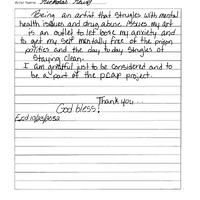 Artist Name:
Being an artist that strugles with mental
health issues and drug abuse issues my art
is an outlet to let loose my anxiety and
to get my self mentally free of the prison
politics and the day to day strugles of
Staying clean.
I am gratful just to be considered and to
be a part of the PCAP project.
Thank you...
God bless!